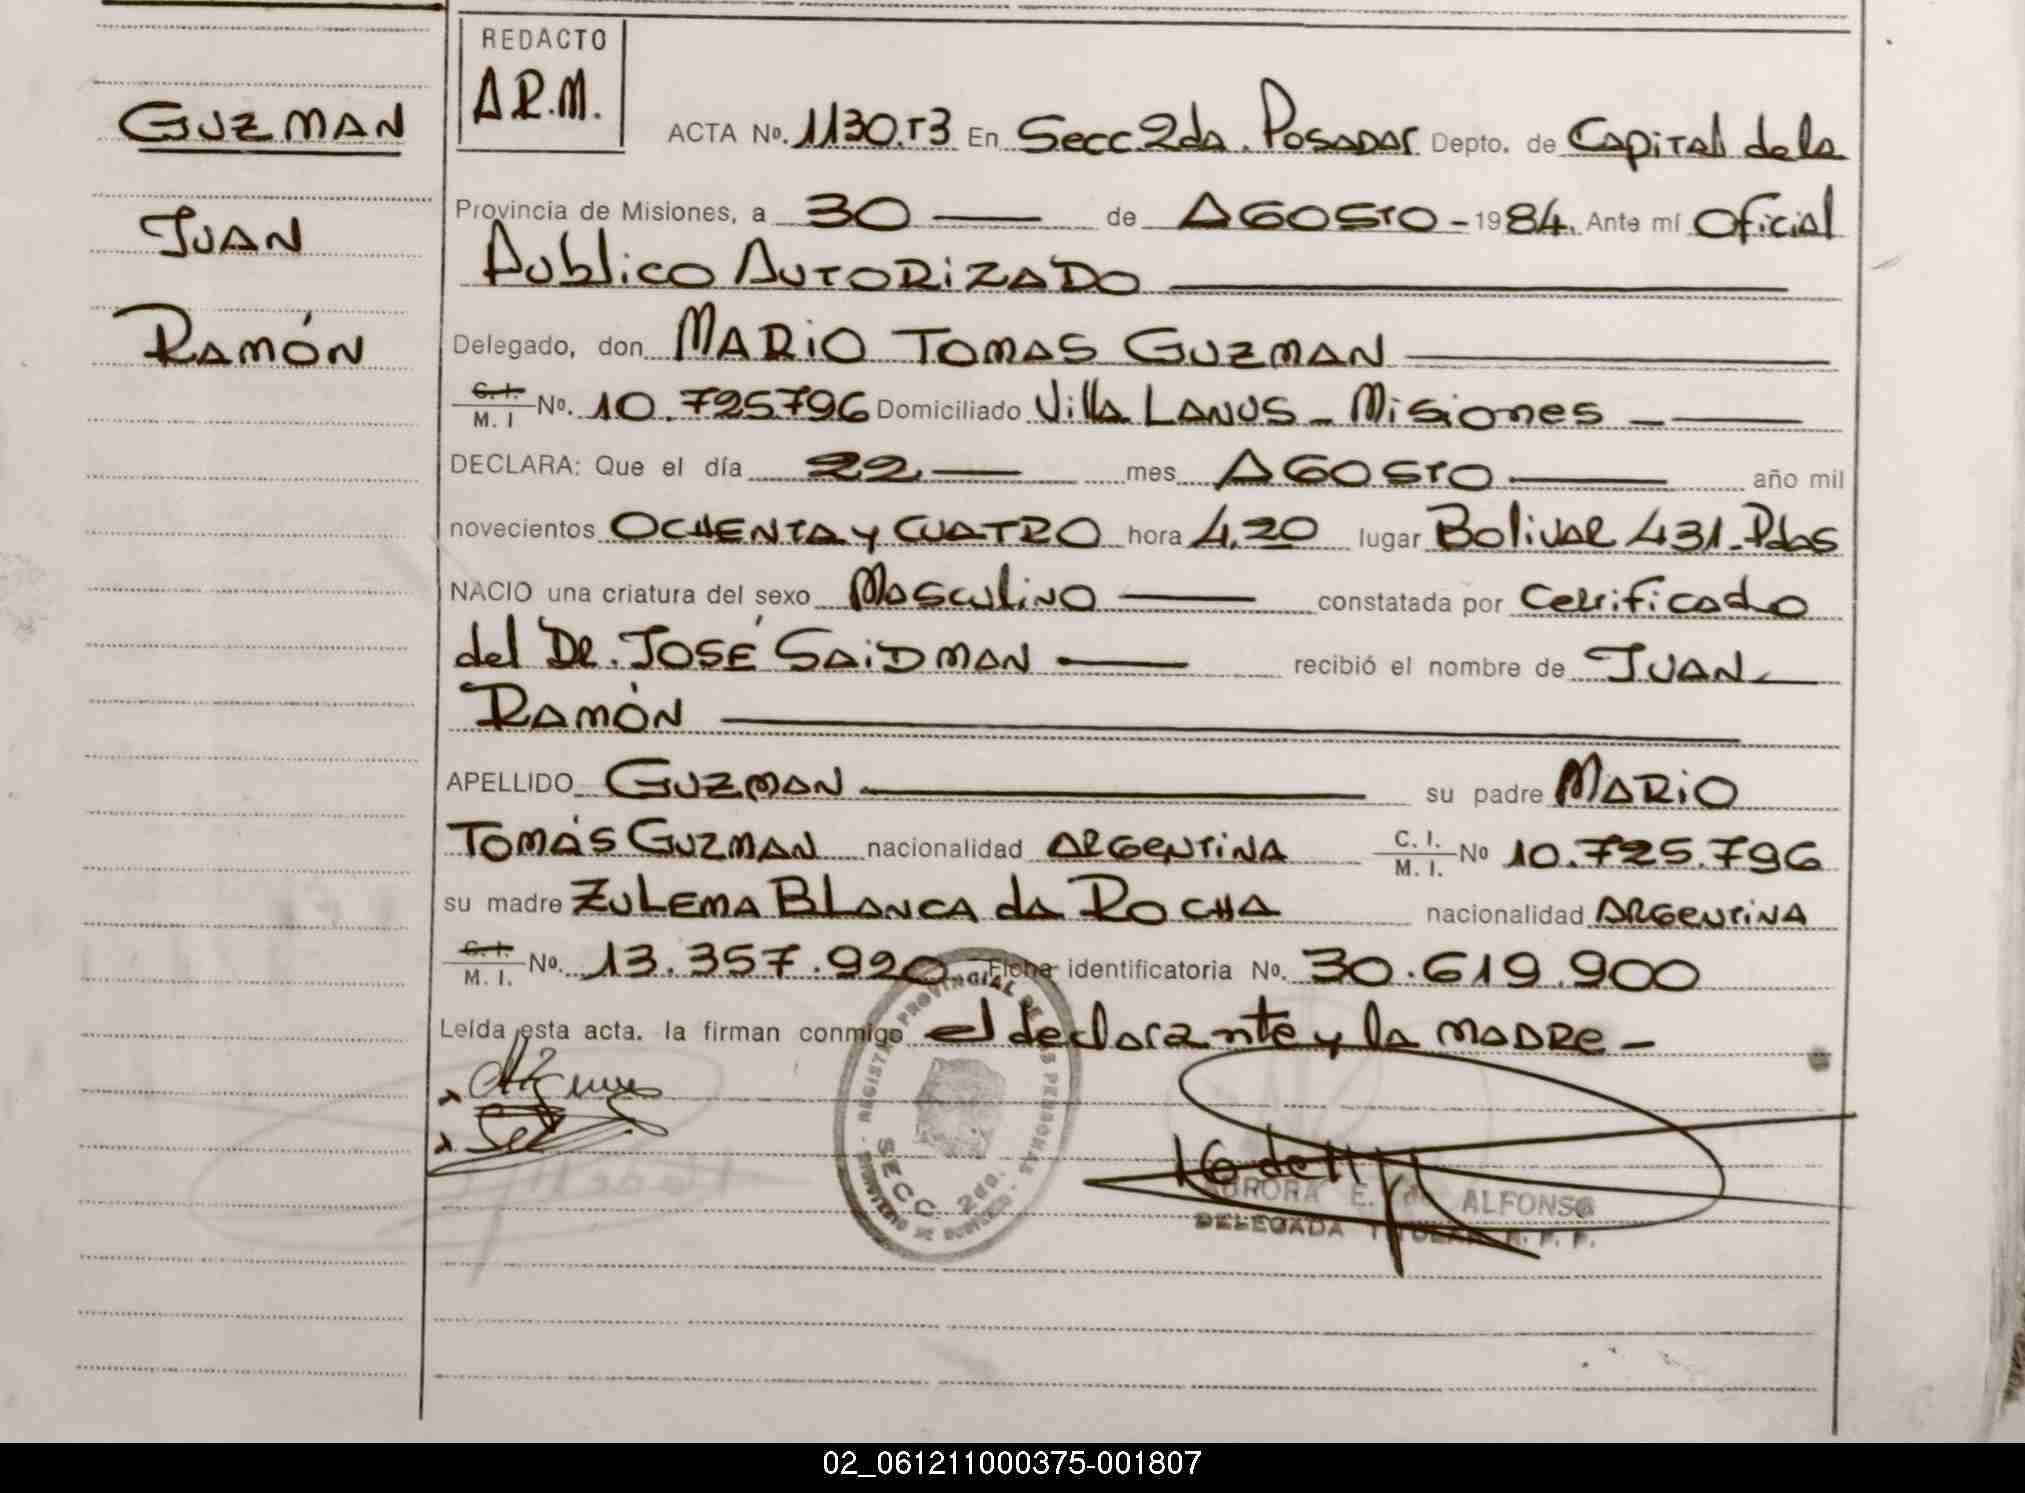 REDACTO
A.R.M.
GUZMAN
JUAN
RAMÓN
ACTA Nº. 1130.T3 En Secc. 2da. POSADAS Depto. de CAPITAL de la
Provincia de Misiones, a 30 — de AGOSTO - 1984. Ante mí Oficial
Publico AUTORIZADO —
Delegado, don MARIO TOMAS GUZMAN —
C. I. / M. I Nº. 10.725796 Domiciliado Villa LANUS - Misiones —
DECLARA: Que el día 22 — mes AGOSTO — año mil
novecientos OCHENTA y CUATRO hora 4,20 lugar Bolivar 431. Pdas
NACIO una criatura del sexo Masculino — constatada por Certificado
del Dr. JOSÉ SAIDMAN — recibió el nombre de JUAN
RAMÓN —
APELLIDO GUZMAN — su padre MARIO
TOMÁS GUZMAN nacionalidad ARGENTINA C. I. / M. I. Nº 10.725.796
su madre ZULEMA BLANCA da ROCHA nacionalidad ARGENTINA
C. I. / M. I. Nº. 13.357.920 Ficha identificatoria Nº. 30.619.900
Leída esta acta. la firman conmigo el declarante y la MADRE -
REGISTRO PROVINCIAL DE LAS PERSONAS
SECC. 2da.
MINISTERIO DE GOBIERNO
AURORA E. de ALFONSO
DELEGADA TITULAR R. P. P.
02_061211000375-001807